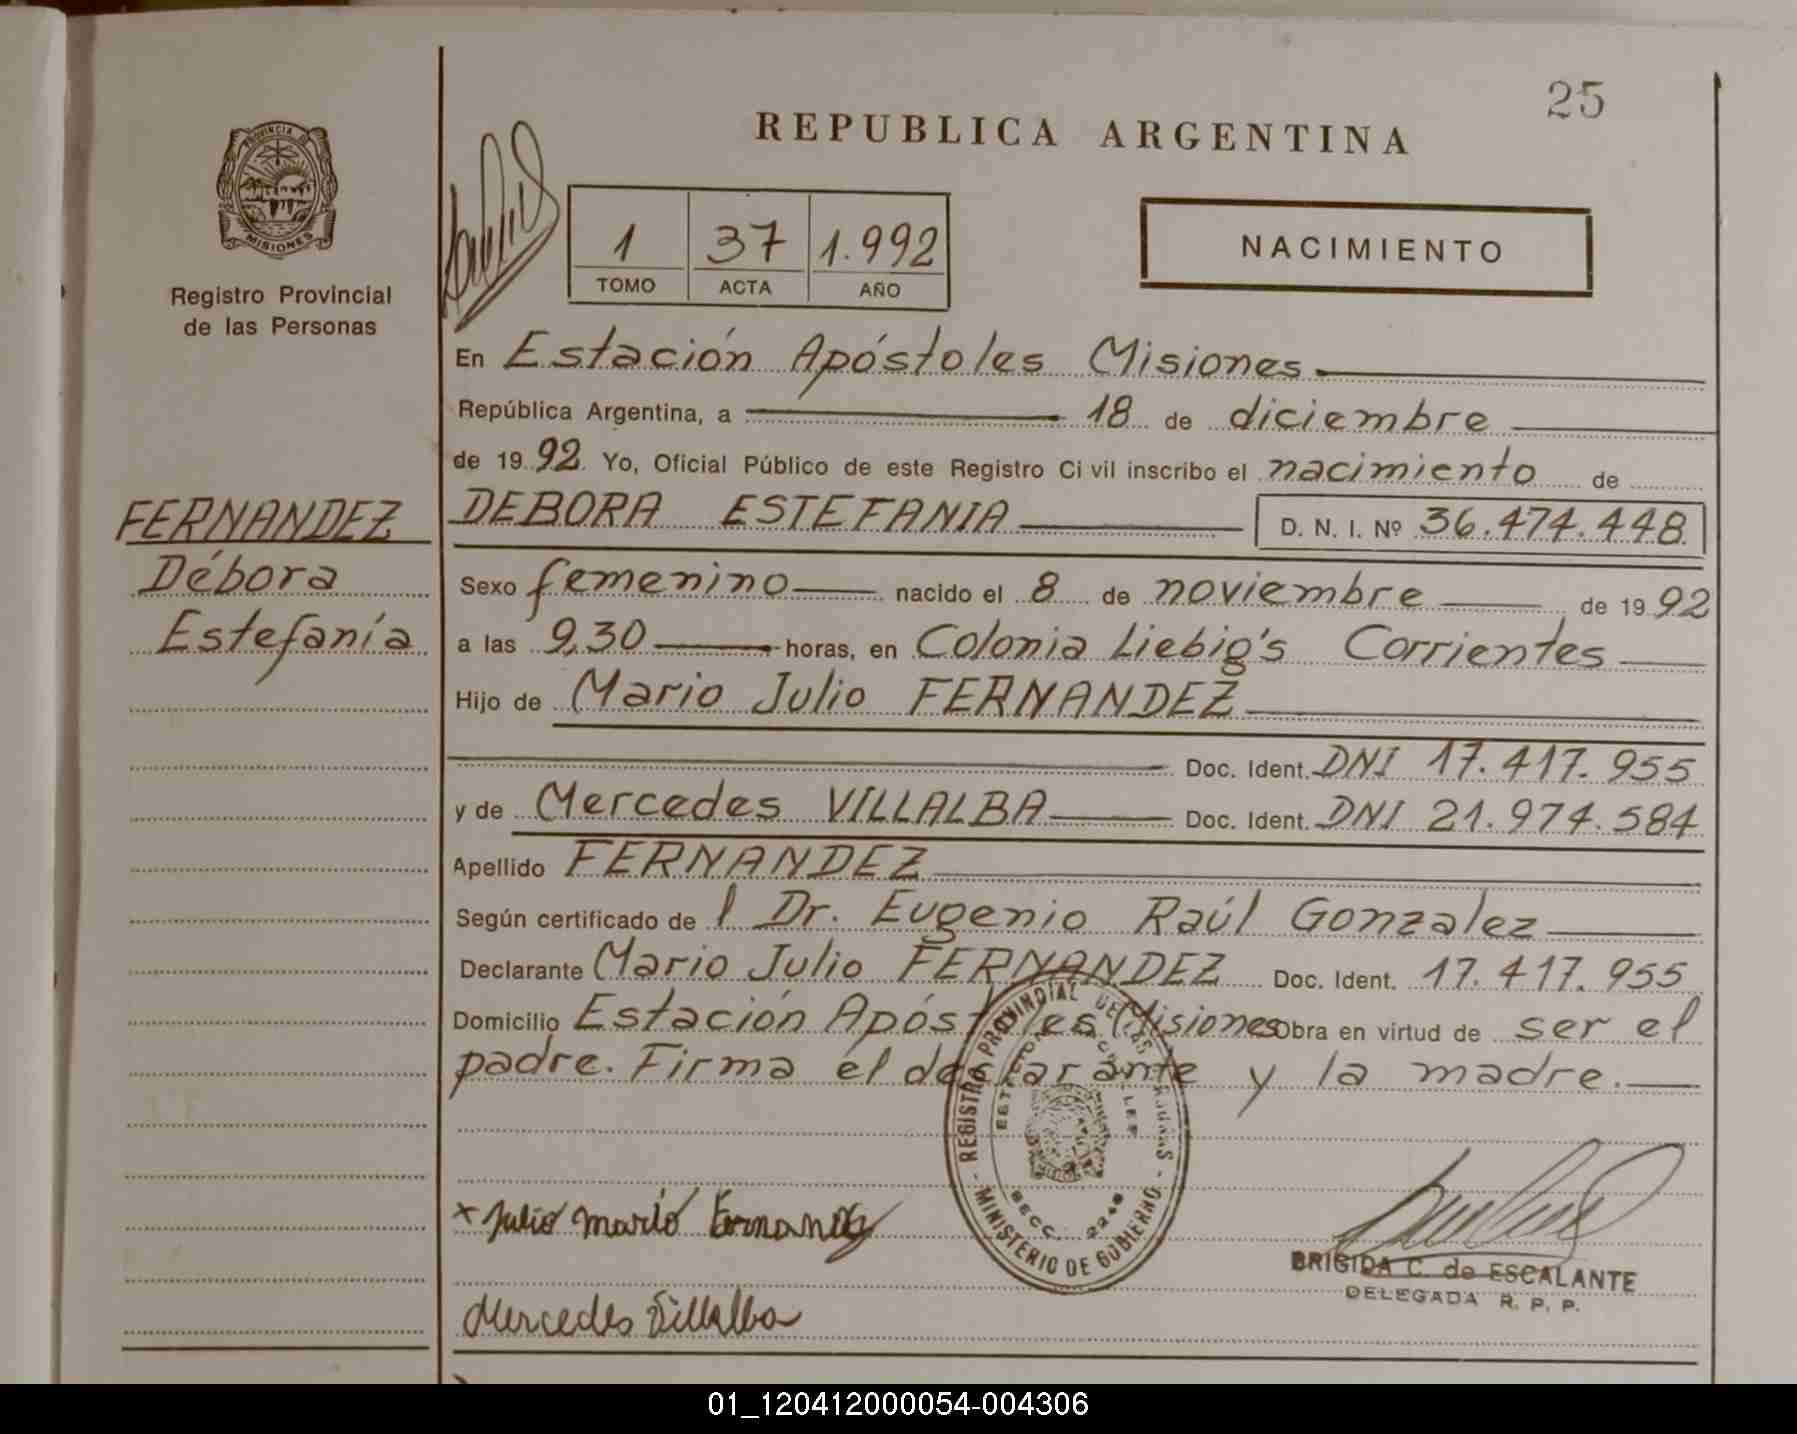 25
REPUBLICA ARGENTINA
PROVINCIA DE MISIONES
Registro Provincial
de las Personas
1 37 1.992
TOMO ACTA AÑO
NACIMIENTO
En Estación Apóstoles Misiones
República Argentina, a 18 de diciembre
de 19 92 Yo, Oficial Público de este Registro Civil inscribo el nacimiento de
FERNANDEZ
Débora
Estefanía
DEBORA ESTEFANIA D. N. I. Nº 36.474.448
Sexo femenino nacido el 8 de noviembre de 19 92
a las 9,30 horas, en Colonia Liebig's Corrientes
Hijo de Mario Julio FERNANDEZ
Doc. Ident. DNI 17.417.955
y de Mercedes VILLALBA Doc. Ident. DNI 21.974.584
Apellido FERNANDEZ
Según certificado de l Dr. Eugenio Raúl Gonzalez
Declarante Mario Julio FERNANDEZ Doc. Ident. 17.417.955
Domicilio Estación Apóstoles Misiones Obra en virtud de ser el
padre. Firma el declarante y la madre.
REGISTRO PROVINCIAL DE LAS PERSONAS - MINISTERIO DE GOBIERNO -
x Julio Mario Fernandez
BRIGIDA C. de ESCALANTE
DELEGADA R. P. P.
Mercedes Villalba
01_120412000054-004306